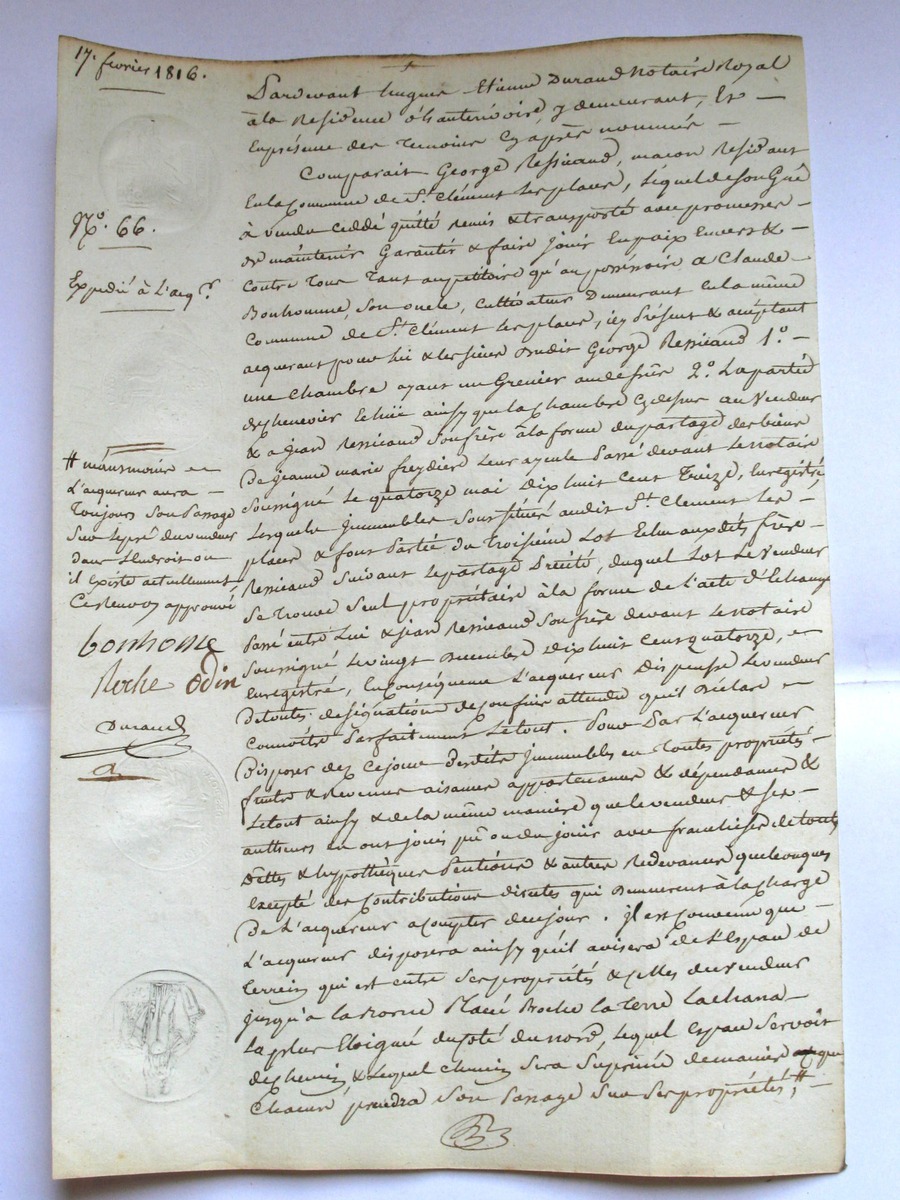 17. fevrier 1816.
N.º 66.
Expedié à L'acq.r
# néanmoins
L'acquereur aura
Toujours Son Passage
Sur le pré du vendeur
dans L'Endroit ou
il Existe actuellement
Ce renvoy approuvé
bonhome
Roche Odin
Durand
Pardevant hugues Etienne Durand Notaire Royal
à la Residence d'hauterivoire, y demeurant, Et
En présence des Temoins Cy après nommés
Comparait George Ressicaud, maçon Résidant
En la Commune de St. Clément Les places, Lequel de Son Gré
à vendu Ceddé quitté remis & transporté avec promesse
de maintenir Garantir & faire jouir En paix Envers &
Contre Tous Tant au petitoire qu'au possessoire a Claude
Bonhomme, Son oncle, Cultivateur Demeurant En la même
Commune de St. Clément Les places, icy Présent & acceptant
acquerant pour Lui & les siens dudit George Ressicaud 1.º
une Chambre ayant un Grenier au dessus 2.º La partie
de chenevier Echue ainsy que la Chambre Cy dessus au Vendeur
& a jean Ressicaud Son frère à la forme du partage des biens
De jeanne marie freydier Leur ayeule Passé devant Le Notaire
Soussigné Le quatorze mai Dix huit Cent Treize, Enregistré
Lesquels Immeubles Sont Situés audit St. Clément Les
places & font Partie du Troisième Lot Echu auxdits frères
Ressicaud Suivant Le partage Précité, duquel Lot Le Vendeur
Se trouve Seul propriétaire à la forme de L'acte d'Echange
Passé entre Lui & jean Ressicaud Son frère devant Le Notaire
Soussigné Le vingt Decembre Dix huit Cent quatorze,
Enregistré, En Conséquence L'acquereur Dispense Le vendeur
De toutes désignation de Confins attendu qu'il Déclare
Connoitre Parfaitement Le tout. Pour Par L'acquereur
Disposer dez Ce jour desdits Immeubles en Toutes propriétés
fruits & revenus aisances appartenances & dépendances &
Le tout ainsy & de la même manière que le vendeur & Ses
autheurs en ont joui pû ou du jouir avec franchise de touts
Dettes & hypothèques Pentions & autres redevances quelconques
Excepté des Contributions directes qui Demeurent à la Charge
De L'acquereur a Compter de ce jour. il est Convenu que
L'acquereur disposera ainsy qu'il avisera de L'Espace de
Terrein qui est entre Ses propriétés & celles du vendeur
jusqu'a la Borne Placé Proche la Terre Lachana
La plus Eloigné du Coté du nord, Lequel Espace Servoit
de chemin, & Lequel chemin Sera Suprimé de maniere que
Chacun prendra Son Passage Sur Ses propriétés, #